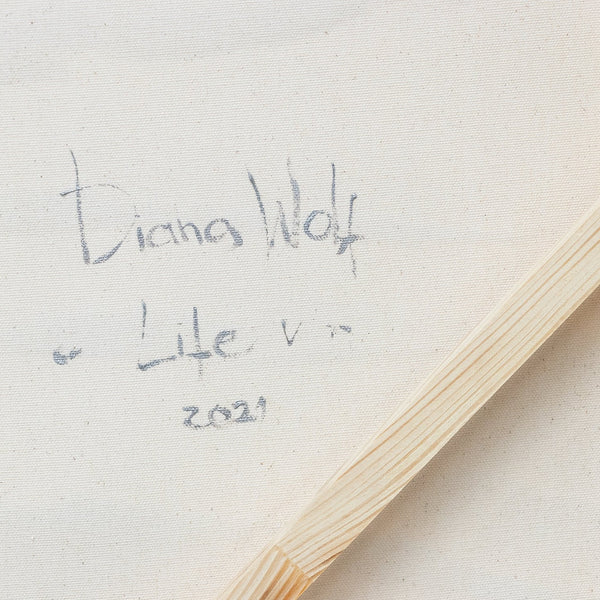 Diana Wolf
" Life
2021